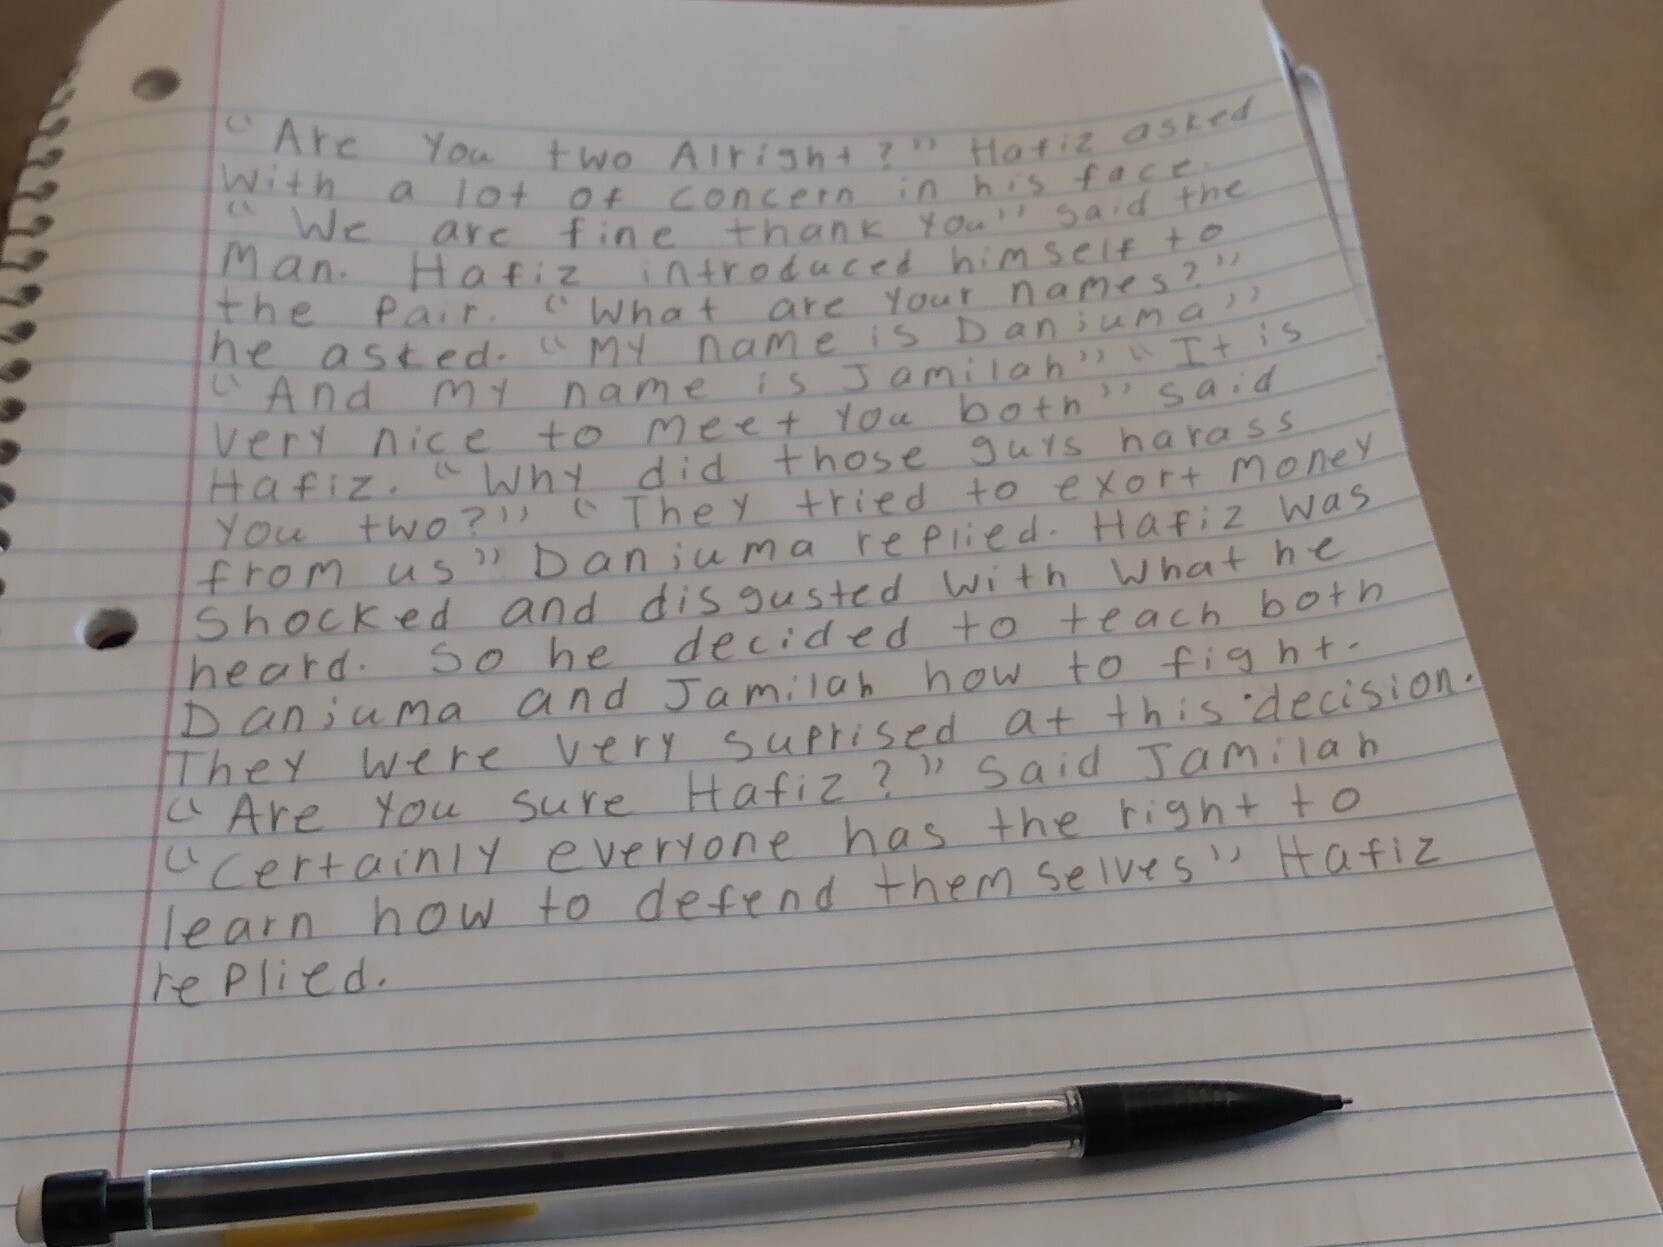 “Are You two Alright?” Hafiz asked
with a lot of concern in his face.
“We are fine thank You” said the
Man. Hafiz introduced himself to
the Pair. “What are Your names?”
he asked. “My name is Danjuma”
“And my name is Jamilah” “It is
very nice to meet You both” said
Hafiz. “Why did those guys harass
You two?” “They tried to exort Money
from us” Danjuma replied. Hafiz was
Shocked and disgusted with what he
heard. So he decided to teach both
Danjuma and Jamilah how to fight.
They were very suprised at this decision.
“Are You sure Hafiz?” Said Jamilah
“Certainly everyone has the right to
learn how to defend themselves” Hafiz
replied.